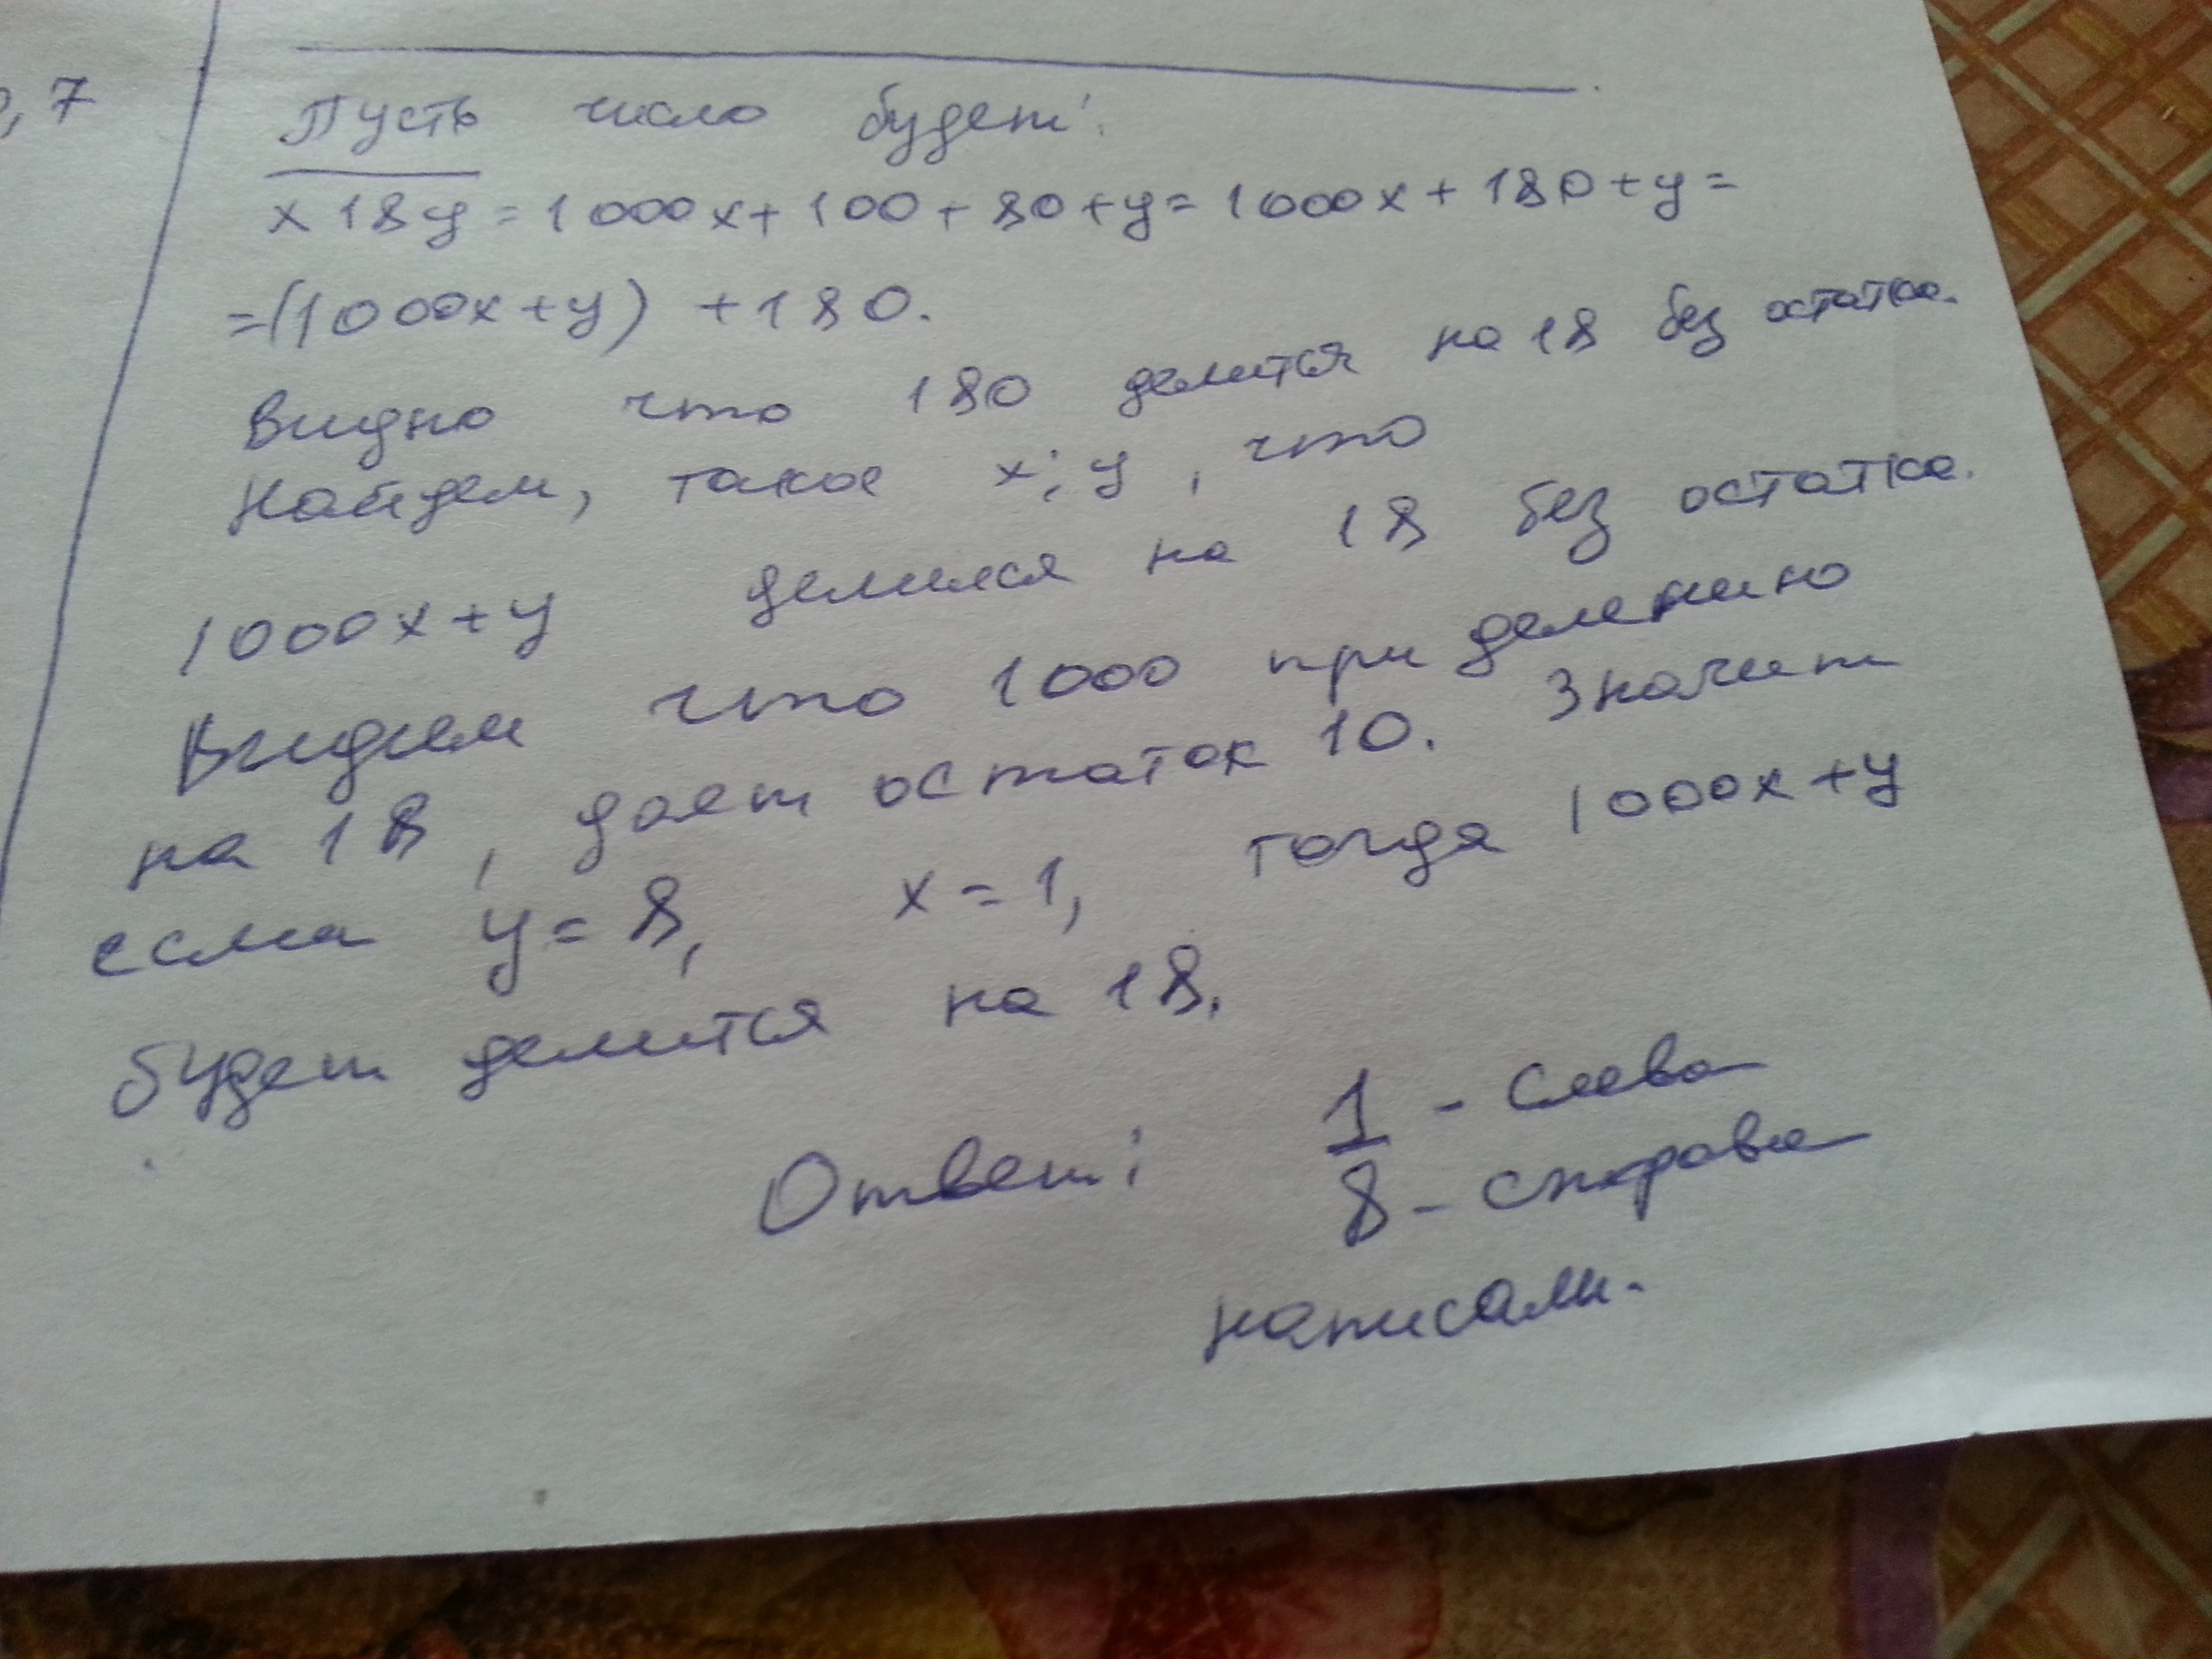 , 7
Пусть число будет:
x18y = 1000x + 100 + 80 + y = 1000x + 180 + y =
= (1000x + y) + 180.
Видно что 180 делится на 18 без остатка.
Найдем, такое x; y, что
1000x + y делился на 18 без остатка.
Видим что 1000 при делению
на 18, дает остаток 10. Значит
если y = 8, x = 1, тогда 1000x + y
будет делится на 18.
Ответ: 1 - слева
8 - справа
написали.